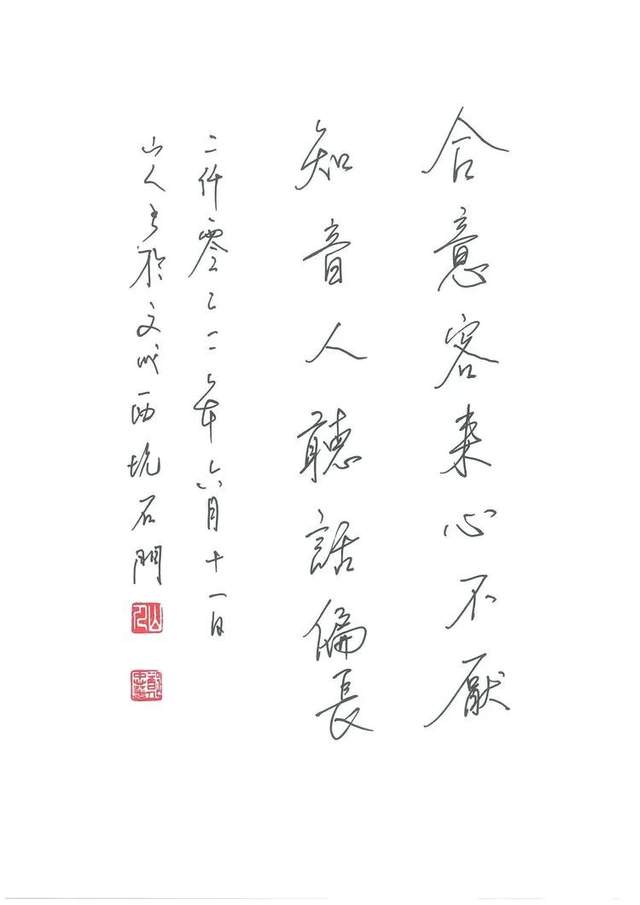 合意客来心不厭
知音人聽話偏長
二仟零二二年六月十一日
山人書於文成西坑石門
山人